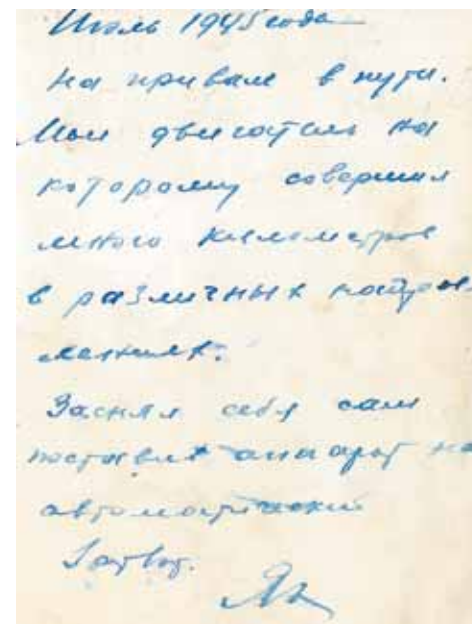 Июль 1945 года
На привале в пути.
Мой двигатель на
котором совершил
много километров
в различных направ
лениях.
Заснял себя сам
поставив аппарат на
автоматический
затвор.